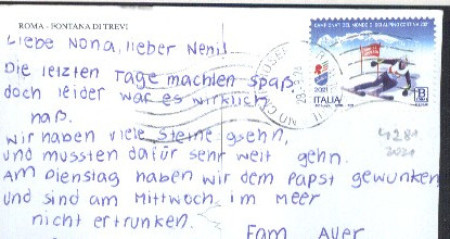 ROMA - FONTANA DI TREVI
CAMPIONATI DEL MONDO DI SCI ALPINO CORTINA 2021
Liebe Nona, lieber Neni!
Die letzten Tage machten spaß,
doch leider war es wirklich
naß.
Wir haben viele Steine gsehn,
und mussten dafür sehr weit gehn.
Am Dienstag haben wir dem Papst gewunken
und sind am Mittwoch im Meer
nicht ertrunken.
Fam Auer
2021
ITALIA
B
4281
2021